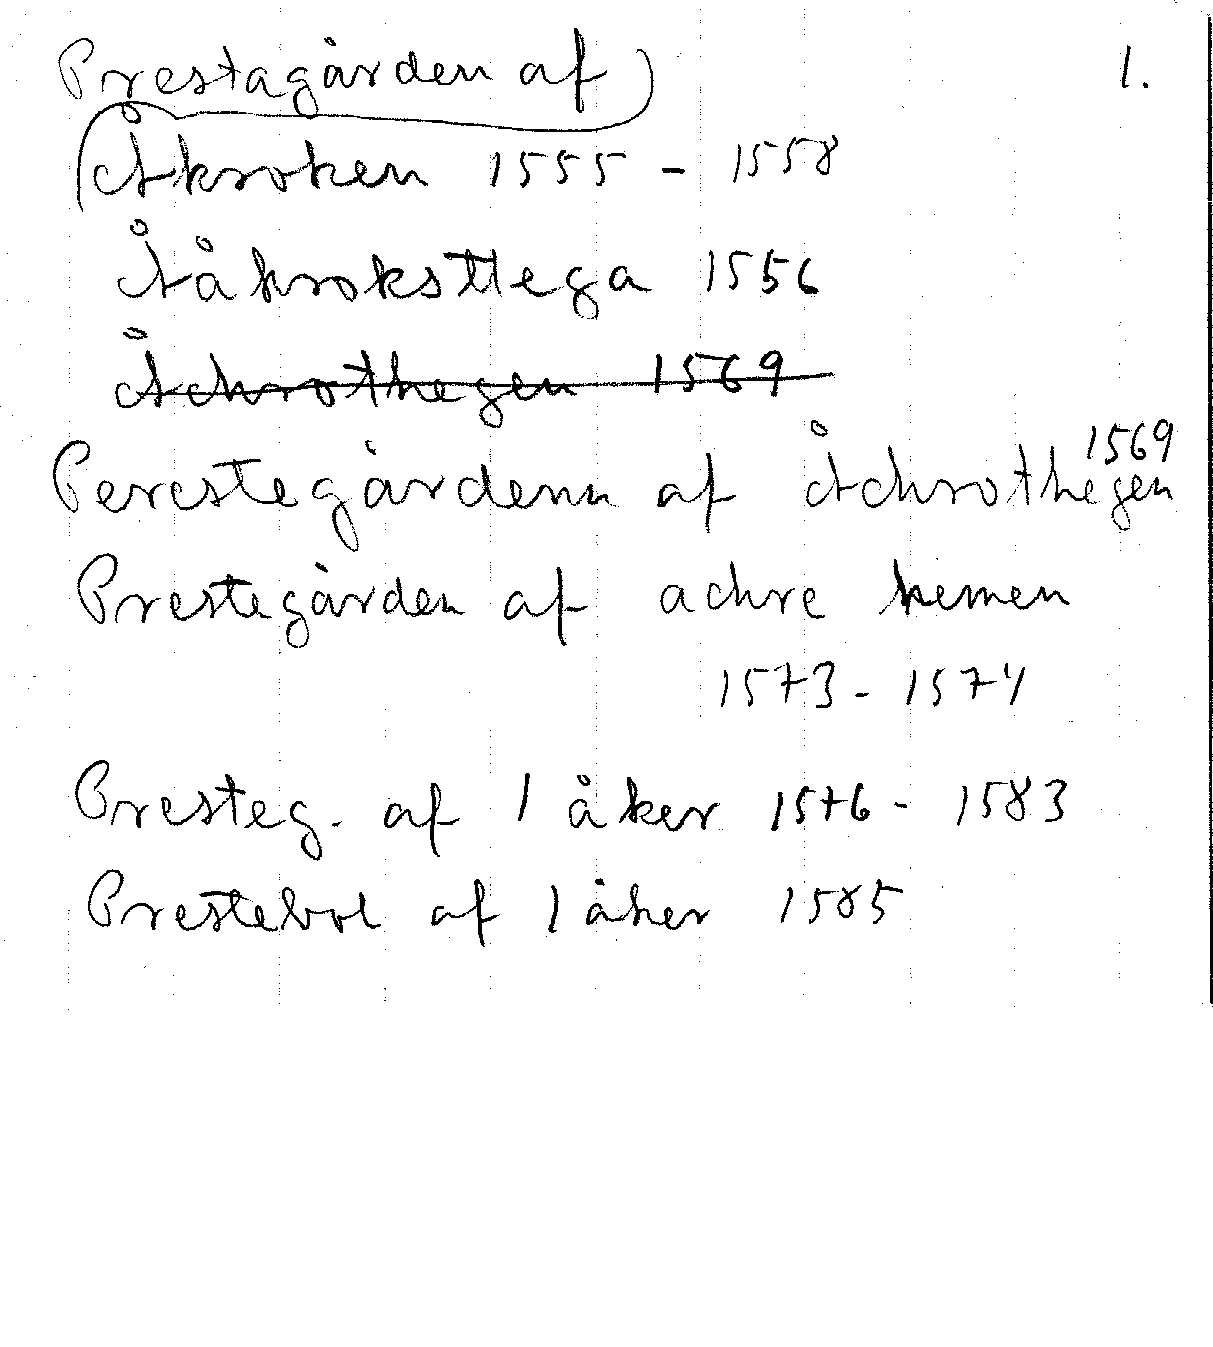 Prestagården af 1.
Åkroken 1555 - 1558
Åååkroksttega 1556
Åchrothegen 1569
Perestegårdenn af Åchrothegen 1569
Prestegården af achre hemen
1573 - 1574
Presteg. af 1 åker 1576 - 1583
Prestebol af 1 åker 1585